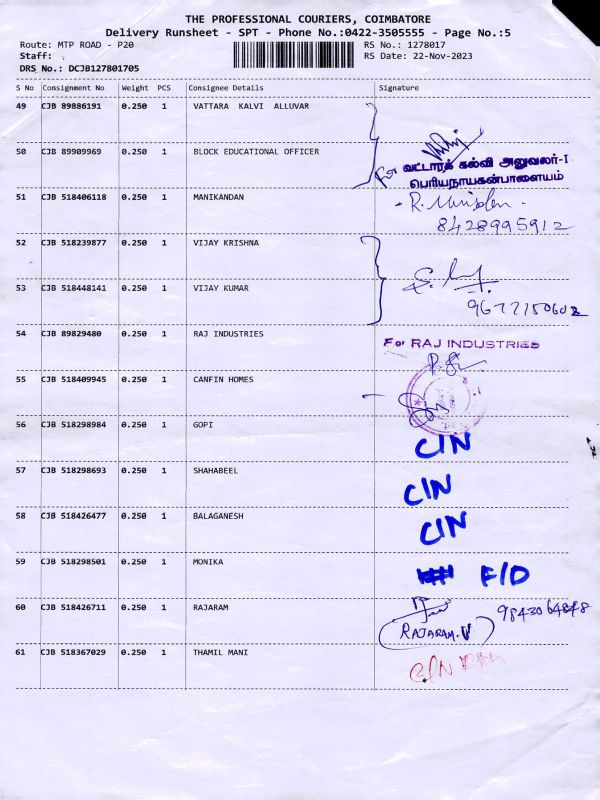 THE PROFESSIONAL COURIERS, COIMBATORE
Delivery Runsheet - SPT - Phone No.:0422-3505555 - Page No.:5
Route: MTP ROAD - P20 RS No.: 1278017
Staff: . RS Date: 22-Nov-2023
DRS No.: DCJB127801705
S No Consignment No Weight PCS Consignee Details Signature
49 CJB 89886191 0.250 1 VATTARA KALVI ALLUVAR
50 CJB 89909969 0.250 1 BLOCK EDUCATIONAL OFFICER For வட்டாரக் கல்வி அலுவலர்-I
பெரியநாயக்கன்பாளையம்
51 CJB 518406118 0.250 1 MANIKANDAN
8428995912
52 CJB 518239877 0.250 1 VIJAY KRISHNA
53 CJB 518448141 0.250 1 VIJAY KUMAR
54 CJB 89829480 0.250 1 RAJ INDUSTRIES For RAJ INDUSTRIES
55 CJB 518409945 0.250 1 CANFIN HOMES
56 CJB 518298984 0.250 1 GOPI C/N
57 CJB 518298693 0.250 1 SHAHABEEL C/N
58 CJB 518426477 0.250 1 BALAGANESH C/N
59 CJB 518298501 0.250 1 MONIKA F/D
60 CJB 518426711 0.250 1 RAJARAM 9843064848
RAJARAM.V
61 CJB 518367029 0.250 1 THAMIL MANI C/N